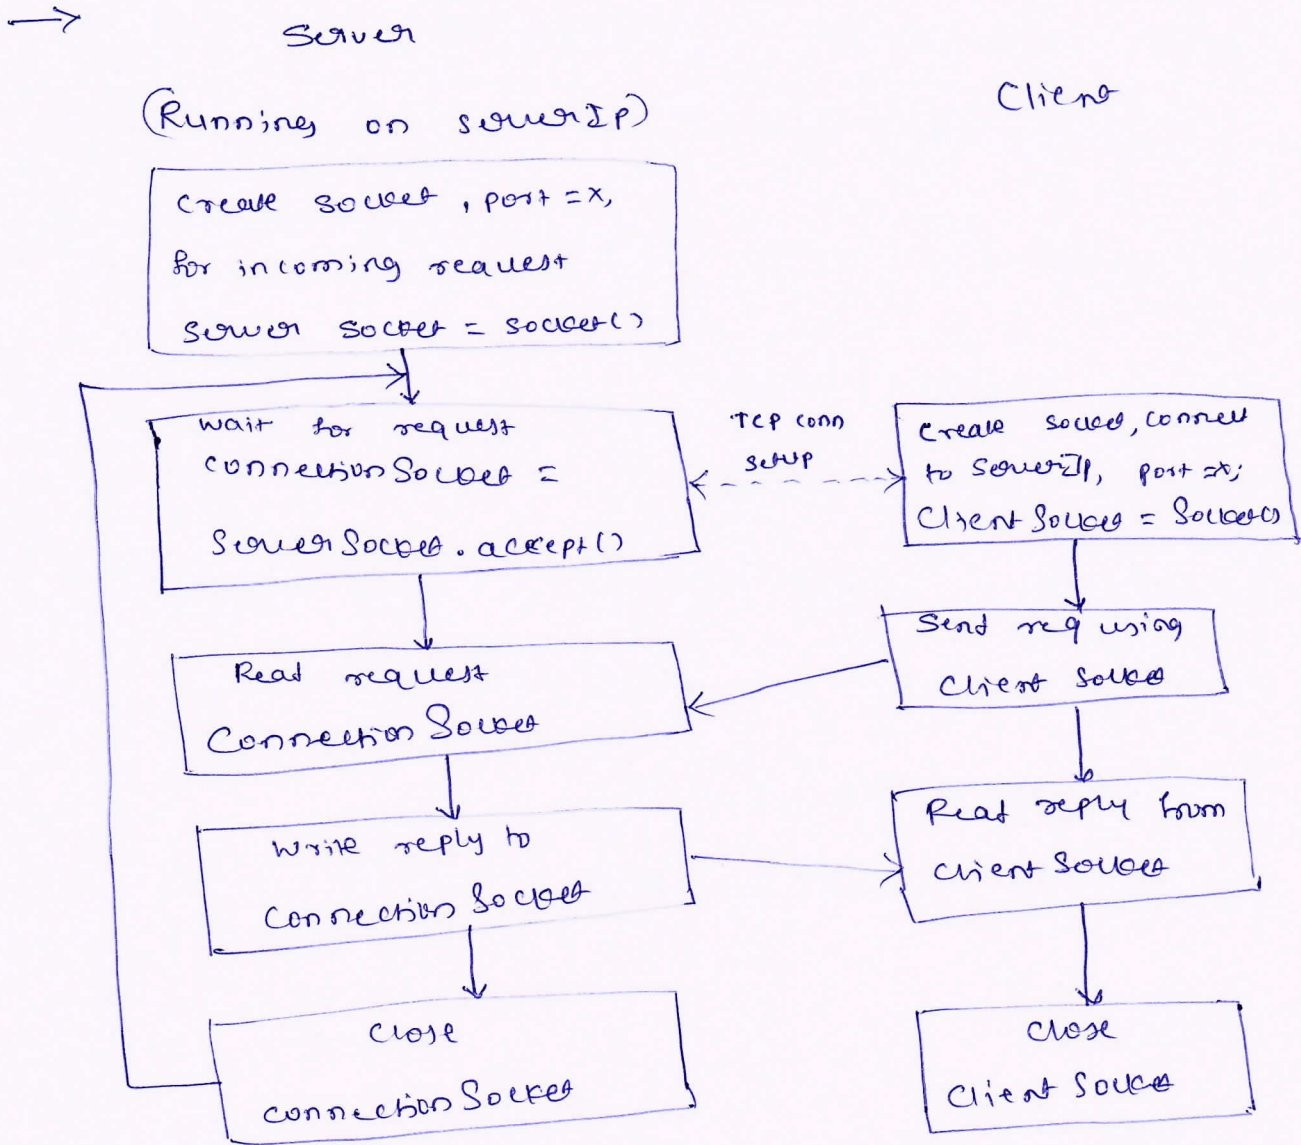 Server
(Running on serverIp)
Client
create socket, port = x,
for incoming request
server socket = socket()
wait for request
connectionSocket =
ServerSocket.accept()
TCP conn
setup
create socket, connect
to ServerIp, port = x;
Client Socket = Socket()
Read request
Connection Socket
Send req using
Client Socket
write reply to
connection Socket
Read reply from
client Socket
close
connection Socket
close
Client Socket